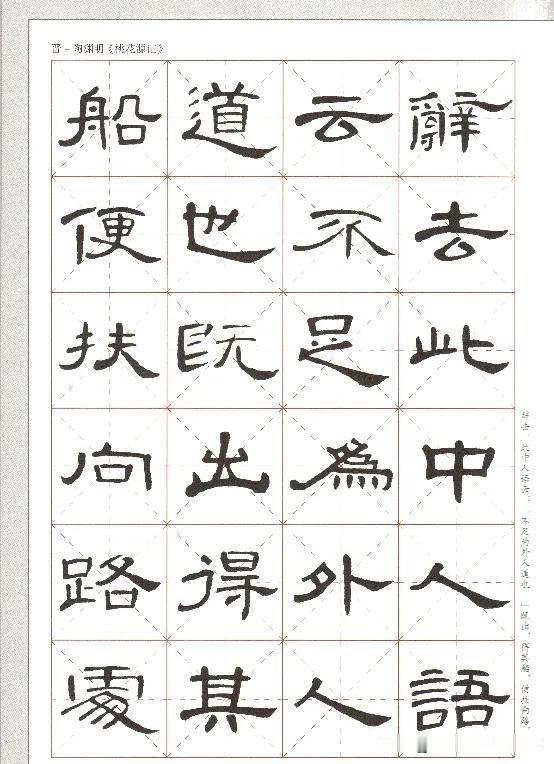 晋－陶渊明《桃花源记》
辭去此中人語
云不足為外人
道也既出得其
船便扶向路處
辞去。此中人语云：“不足为外人道也。”既出，得其船，便扶向路，